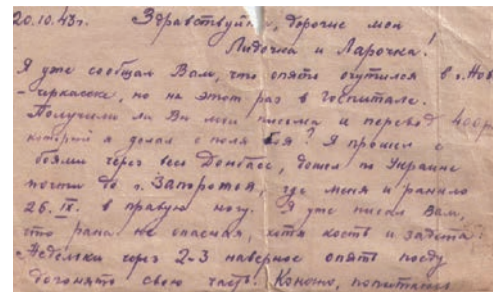 20.10.43г. Здравствуйте, дорогие мои
Лидочка и Ларочка!
Я уже сообщал Вам, что опять очутился в г. Нов
-черкасске, но на этот раз в госпитале.
Получили ли Вы мои письма и перевод 400р
который я делал с поля боя? Я прошел с
боями через весь Донбасс, дошел по Украине
почти до г. Запорожья, где меня и ранило
26.IX. в правую ногу. Я уже писал Вам,
что рана не опасная, хотя кость и задета.
Недельки через 2-3 наверное опять поеду
догонять свою часть. Конечно, попытаюсь